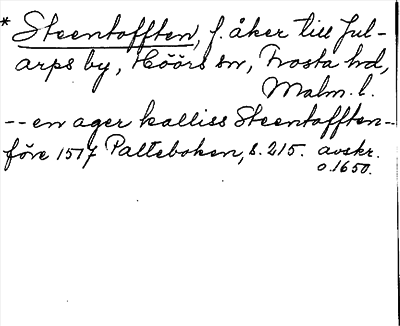 * Steentofften, f. åker till Jul-
arps by, Höörs sn, Frosta hd,
Malm. l.
-- en ager kalliss Steentofften --
före 1517 Palteboken, s. 215. avskr.
o. 1650.